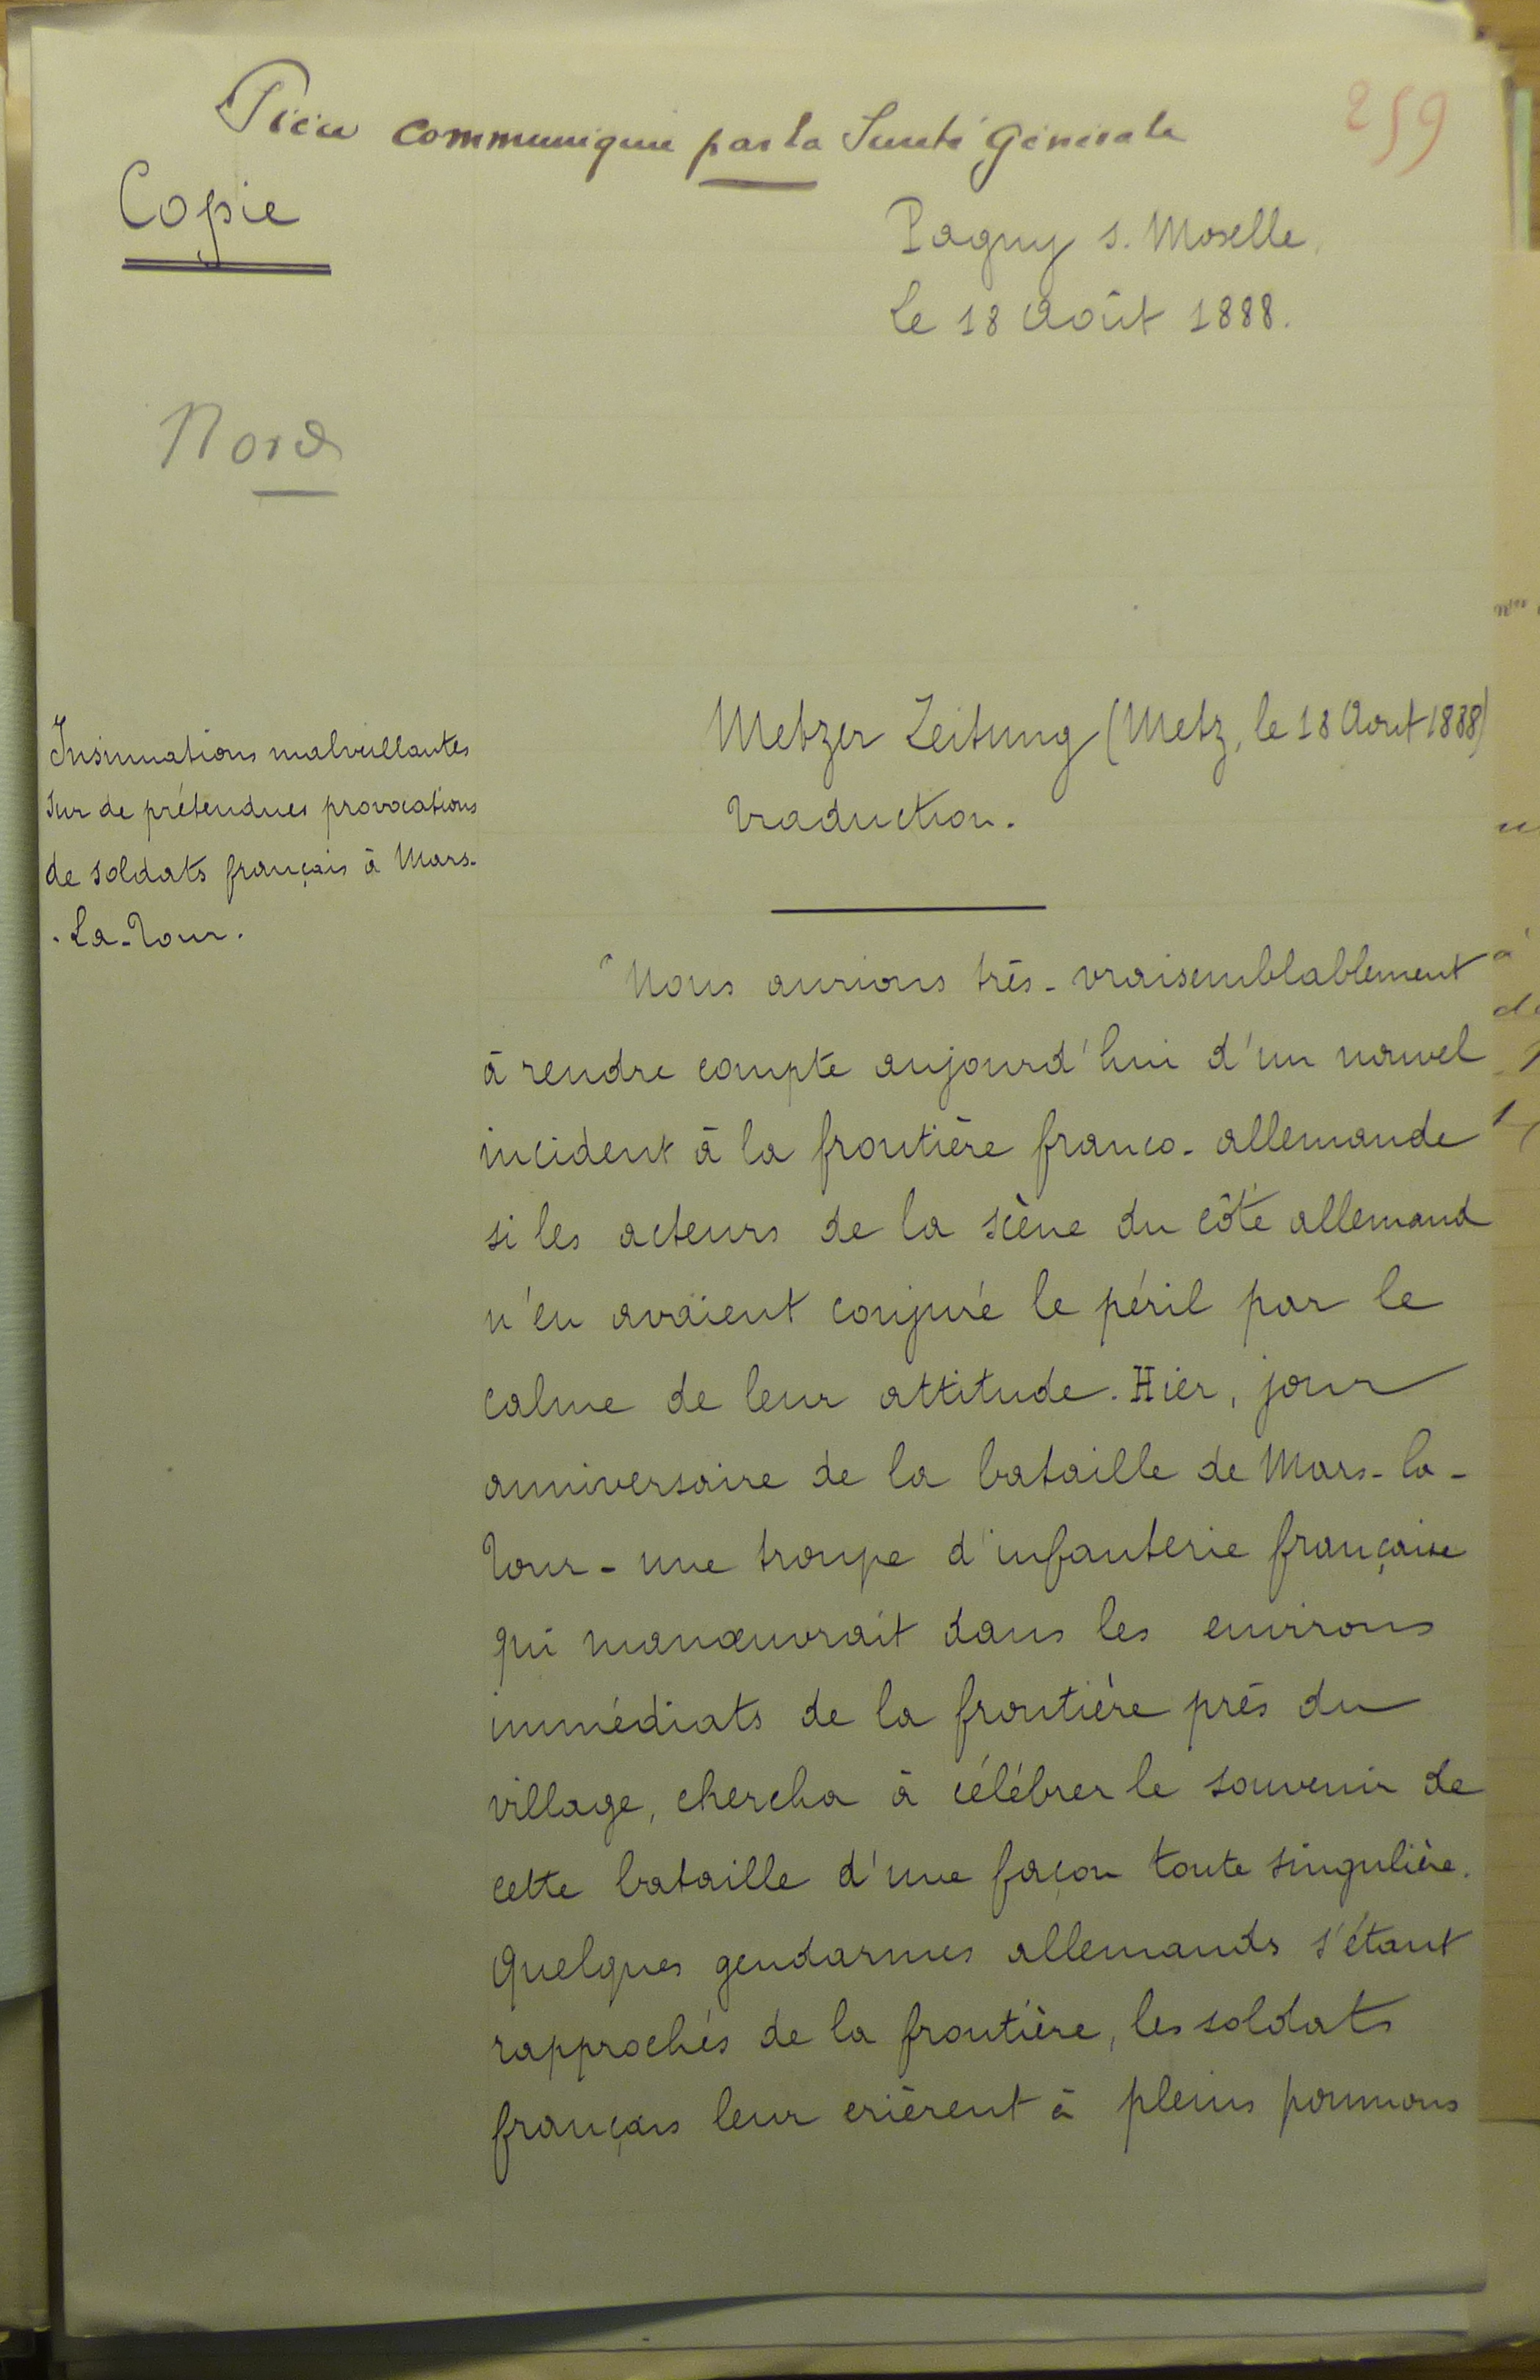 Pièce communiquée par la Sureté Générale
259
Copie
Pagny s. Moselle,
Le 18 Août 1888.
Nord
Insinuations malveillantes
sur de prétendues provocations
de soldats français à Mars-
-La-Tour.
Metzer Zeitung (Metz, le 18 Aout 1888)
Traduction.
"Nous aurions très-vraisemblablement
à rendre compte aujourd'hui d'un nouvel
incident à la frontière franco-allemande
si les acteurs de la scène du côté allemand
n'en avaient conjuré le péril par le
calme de leur attitude. Hier, jour
anniversaire de la bataille de Mars-la-
Tour - une troupe d'infanterie française
qui manœuvrait dans les environs
immédiats de la frontière près du
village, chercha à célébrer le souvenir de
cette bataille d'une façon toute singulière.
Quelques gendarmes allemands s'étant
rapprochés de la frontière, les soldats
français leur crièrent à pleins poumons